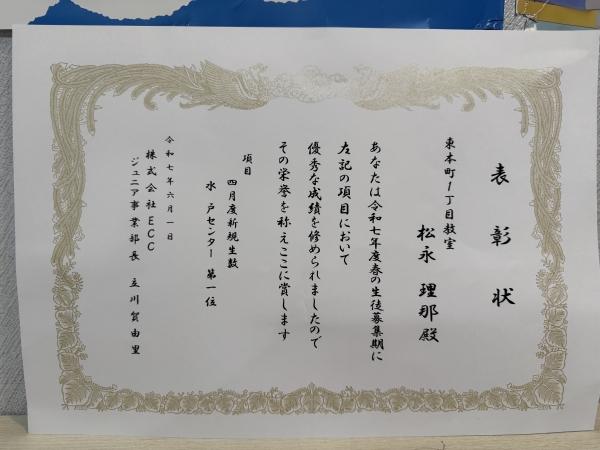 表彰状
東本町1丁目教室
松永 理那殿
あなたは令和七年度春の生徒募集期に
左記の項目において
優秀な成績を修められましたので
その栄誉を称えここに賞します
項目
四月度新規生数
水戸センター 第一位
令和七年六月一日
株式会社ECC
ジュニア事業部長 立川賀由里